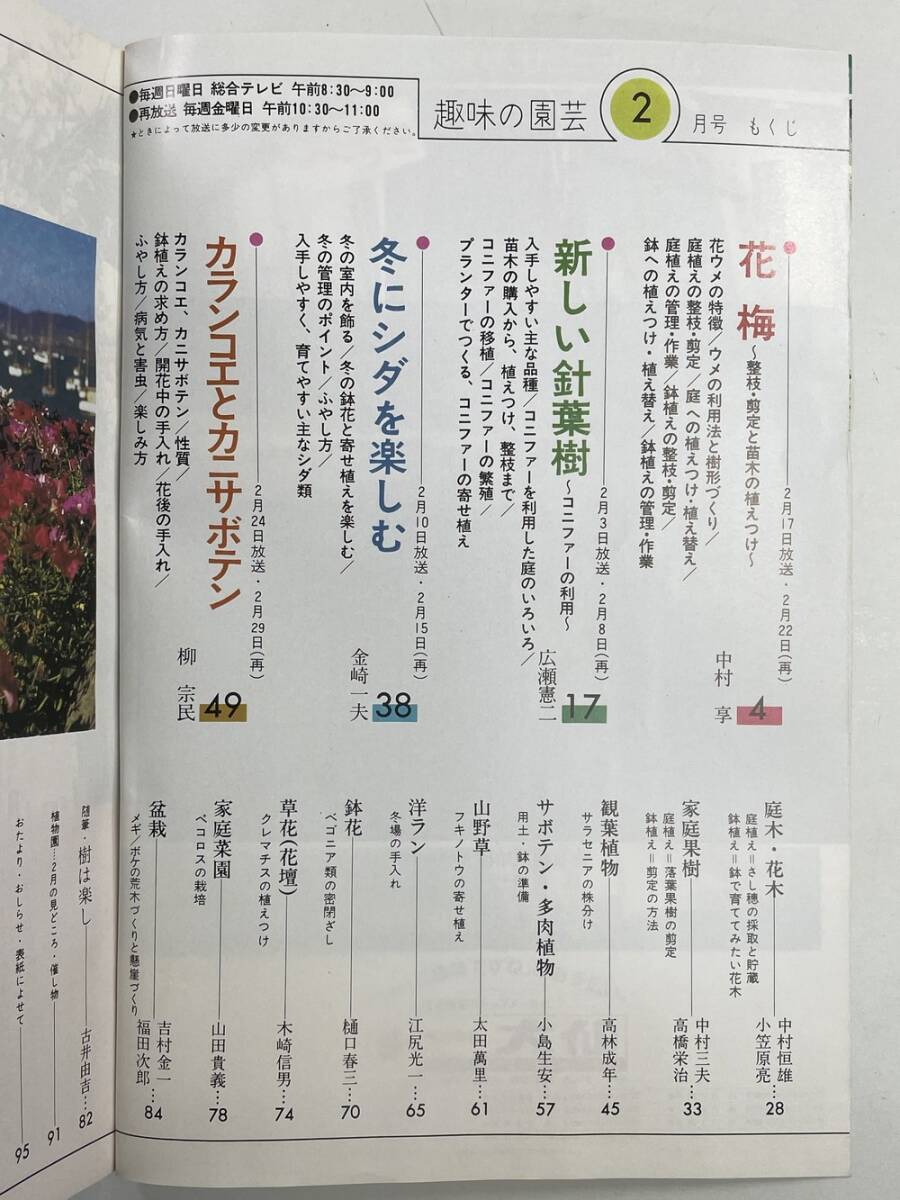 ●毎週日曜日 総合テレビ 午前8:30〜9:00
●再放送 毎週金曜日 午前10:30〜11:00
★ときによって放送に多少の変更がありますからご了承ください。
趣味の園芸 2 月号 もくじ
●2月17日放送・2月22日(再)
花梅
〜整枝・剪定と苗木の植えつけ〜
花ウメの特徴/ウメの利用法と樹形づくり/
庭植えの整枝・剪定/庭への植えつけ・植え替え/
庭植えの管理・作業/鉢植えの整枝・剪定/
鉢への植えつけ・植え替え/鉢植えの管理・作業
中村 享
4
●2月3日放送・2月8日(再)
新しい針葉樹
〜コニファーの利用〜
入手しやすい主な品種/コニファーを利用した庭のいろいろ/
苗木の購入から、植えつけ、整枝まで/
コニファーの移植/コニファーの繁殖/
プランターでつくる、コニファーの寄せ植え
広瀬憲二
17
●2月10日放送・2月15日(再)
冬にシダを楽しむ
冬の室内を飾る/冬の鉢花と寄せ植えを楽しむ/
冬の管理のポイント/ふやし方/
入手しやすく、育てやすい主なシダ類
金崎一夫
38
●2月24日放送・2月29日(再)
カランコエとカニサボテン
カランコエ、カニサボテン/性質/
鉢植えの求め方/開花中の手入れ/花後の手入れ/
ふやし方/病気と害虫/楽しみ方
柳 宗民
49
庭木・花木
庭植え=さし穂の採取と貯蔵 中村恒雄
鉢植え=鉢で育ててみたい花木 小笠原亮…28
家庭果樹
庭植え=落葉果樹の剪定 中村三夫
鉢植え=剪定の方法 高橋栄治…33
観葉植物
サラセニアの株分け 高林成年…45
サボテン・多肉植物
用土・鉢の準備 小島生安…57
山野草
フキノトウの寄せ植え 太田萬里…61
洋ラン
冬場の手入れ 江尻光一…65
鉢花
ベゴニア類の密閉ざし 樋口春三…70
草花(花壇)
クレマチスの植えつけ 木崎信男…74
家庭菜園
ペコロスの栽培 山田貴義…78
盆栽
メギ/ボケの荒木づくりと懸崖づくり 吉村金一
福田次郎…84
随筆・樹は楽し 古井由吉…82
植物園…2月の見どころ・催し物 91
おたより・おしらせ・表紙によせて 95